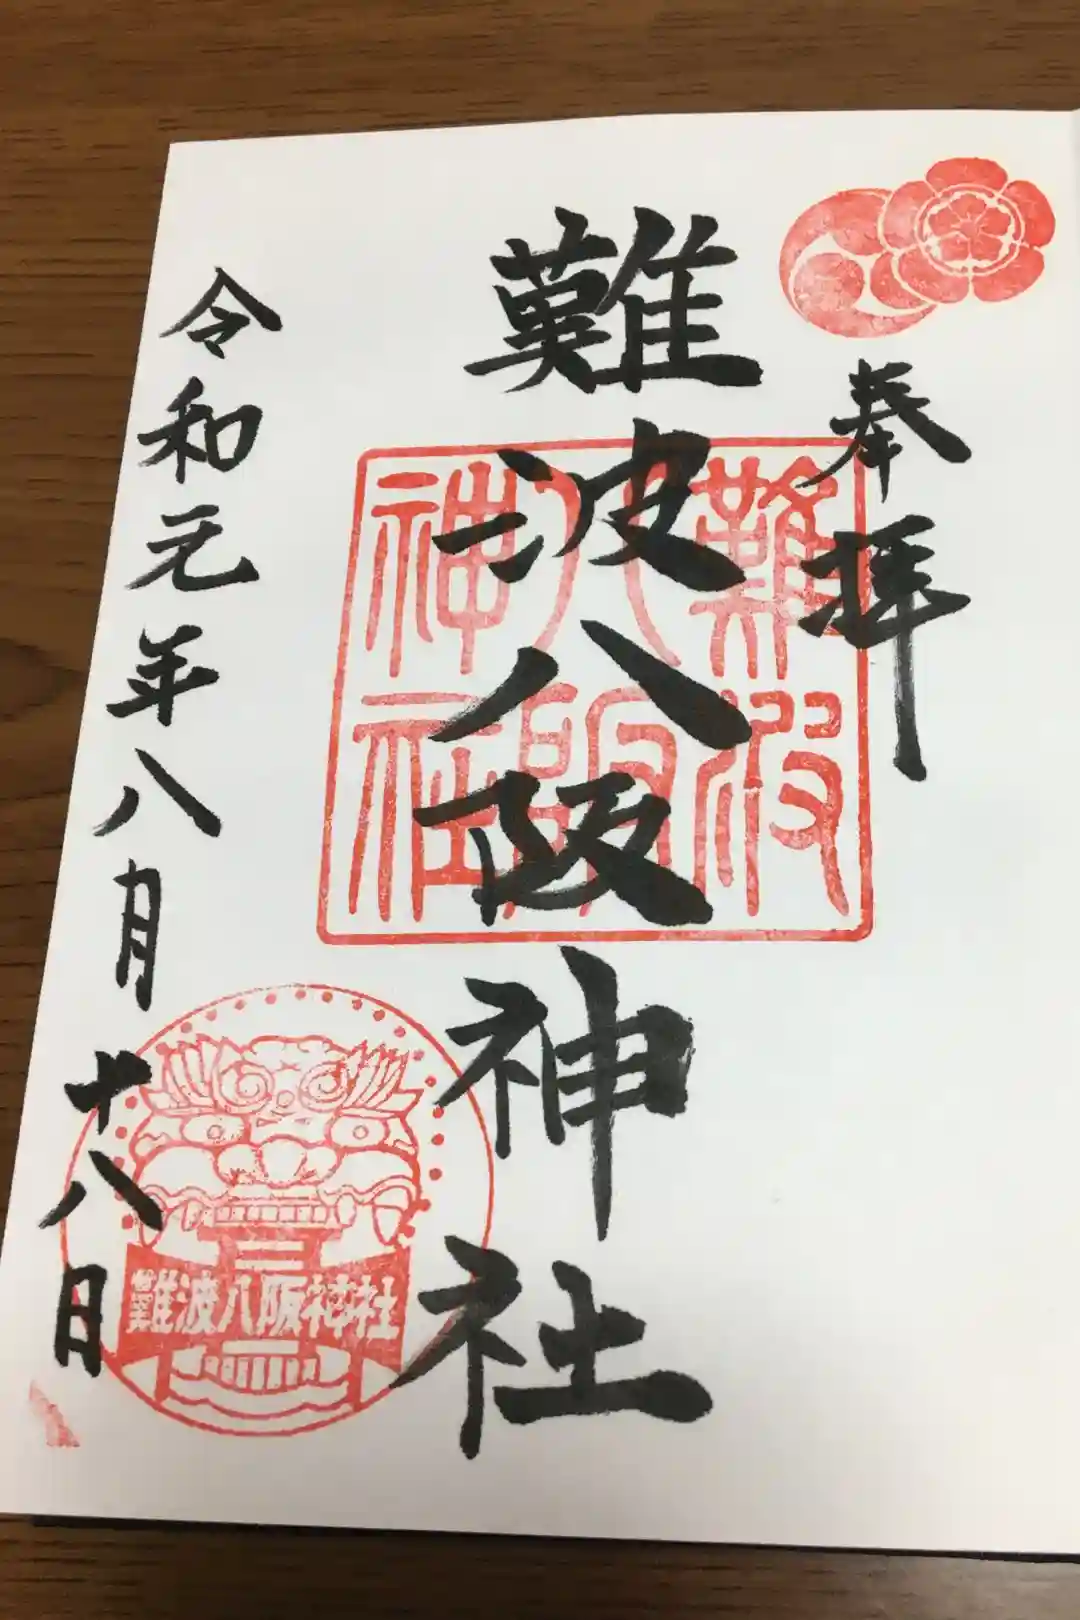 奉拝
難波八阪神社
難波
八阪
神社
令和元年八月十八日
難波八阪神社